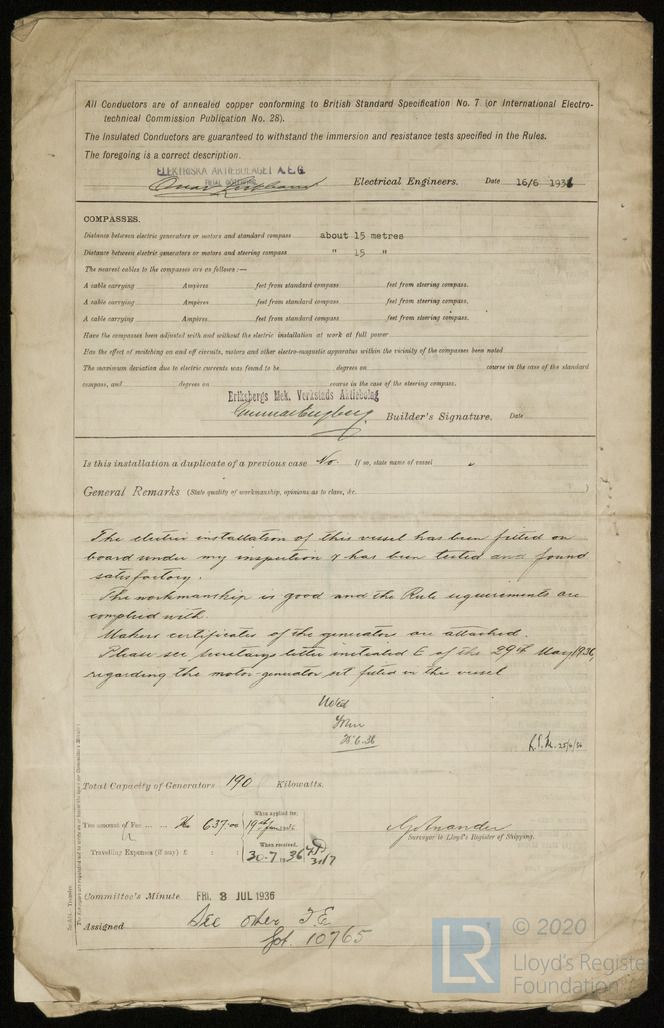 All Conductors are of annealed copper conforming to British Standard Specification No. 7 (or International Electro-
technical Commission Publication No. 28).
The Insulated Conductors are guaranteed to withstand the immersion and resistance tests specified in the Rules.
The foregoing is a correct description.
ELEKTRISKA AKTIEBOLAGET A.E.G.
FILIAL GÖTEBORG
Electrical Engineers. Date 16/6 1936
COMPASSES.
Distance between electric generators or motors and standard compass about 15 metres
Distance between electric generators or motors and steering compass " 15 "
The nearest cables to the compasses are as follows:—
A cable carrying Ampères feet from standard compass feet from steering compass.
A cable carrying Ampères feet from standard compass feet from steering compass.
A cable carrying Ampères feet from standard compass feet from steering compass.
Have the compasses been adjusted with and without the electric installation at work at full power
Has the effect of switching on and off circuits, motors and other electro-magnetic apparatus within the vicinity of the compasses been noted
The maximum deviation due to electric currents was found to be degrees on course in the case of the standard
compass, and degrees on course in the case of the steering compass.
Eriksbergs Mek. Verkstads Aktiebolag
Builder's Signature. Date
Is this installation a duplicate of a previous case No. If so, state name of vessel "
General Remarks (State quality of workmanship, opinions as to class, &c.)
The electric installation of this vessel has been fitted on
board under my inspection & has been tested and found
satisfactory.
The workmanship is good and the Rule requirements are
complied with.
Makers certificates of the generators are attached.
Please see secretarys letter initialed E of the 29th May 1936,
regarding the motor-generator set fitted in the vessel
Noted
L.S.M. 25/6/36
Total Capacity of Generators 190 Kilowatts.
When applied for,
The amount of Fee ... ... Kr 637.00 19th June 1936
When received,
Travelling Expenses (if any) £ : : 30.7.1936 31/7
Surveyor to Lloyd's Register of Shipping.
Committee's Minute FRI. 3 JUL 1936
Assigned See other F.E.
Got 10765
LR
© 2020
Lloyd's Register
Foundation